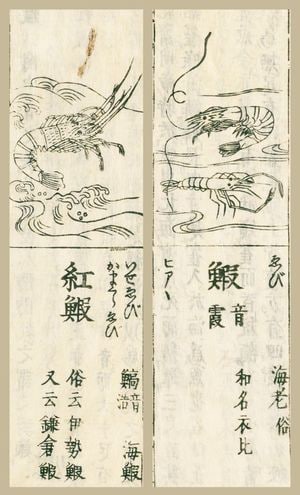 ゑび
鰕 音霞
ヒアヽ
海老 俗
和名衣比
いせゑび
かまくらゑび
紅鰕
鰝 音浩 海鰕
俗云伊勢鰕
又云鎌倉鰕